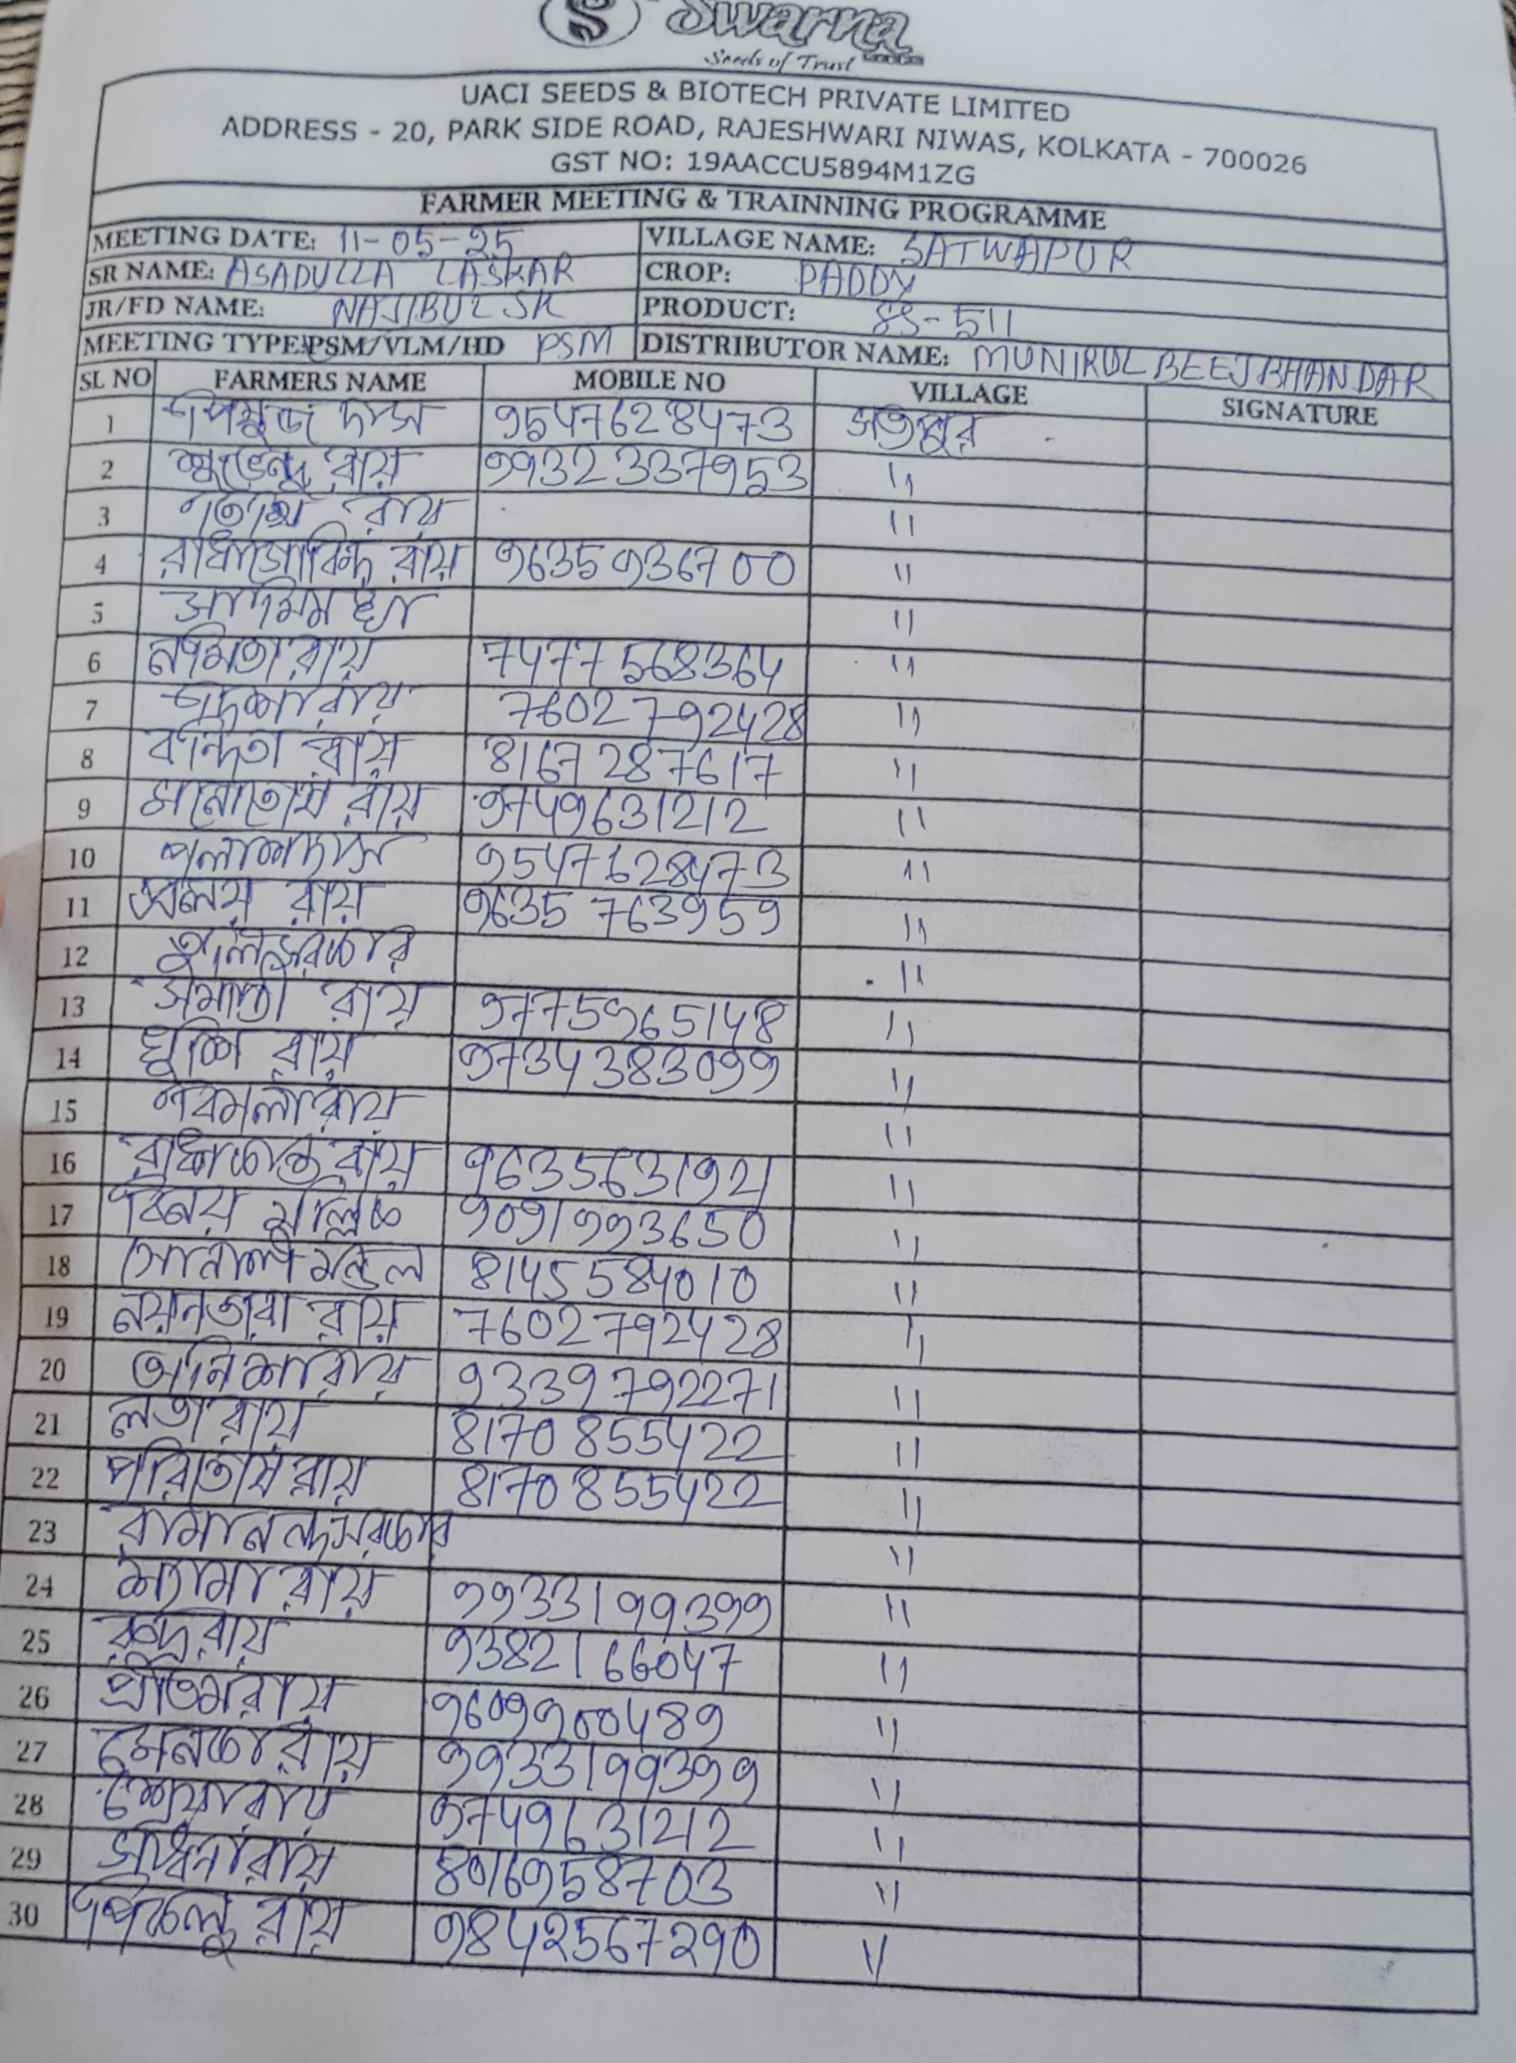 Swarna
Seeds of Trust
UACI SEEDS & BIOTECH PRIVATE LIMITED
ADDRESS - 20, PARK SIDE ROAD, RAJESHWARI NIWAS, KOLKATA - 700026
GST NO: 19AACCU5894M1ZG
FARMER MEETING & TRAINNING PROGRAMME
MEETING DATE: 11-05-25 VILLAGE NAME: SATWAPUR
SR NAME: ASADULLA LASKAR CROP: PADDY
JR/FD NAME: NAJIBUL SK PRODUCT: SS-511
MEETING TYPE: PSM/VLM/HD PSM DISTRIBUTOR NAME: MUNIRUL BEEJ BHANDAR
SL NO FARMERS NAME MOBILE NO VILLAGE SIGNATURE
1 দাস 9547628473
2 শুভেন্দু রায় 9932337953 "
3 রায় "
4 রাধাগোবিন্দ রায় 9635936700 "
5 "
6 নমিতা রায় 7477568364 "
7 রায় 7602792428 "
8 বন্দিতা রায় 8167287617 "
9 মনোতোষ রায় 9749631212 "
10 পলাশ দাস 9547628473 "
11 রায় 9635763959 "
12 সরকার "
13 সমাপ্তী রায় 9775965148 "
14 খুশি রায় 9734383099 "
15 রায় "
16 রাধাকান্ত রায় 9635631921 "
17 বিনয় মল্লিক 9091993650 "
18 সোনালী মন্ডল 8145584010 "
19 নয়নতারা রায় 7602792428 "
20 রায় 9339792271 "
21 লতা রায় 8170855422 "
22 পরিতোষ রায় 8170855422 "
23 রামানন্দ সরকার "
24 শ্যামা রায় 9933199399 "
25 রুদ্র রায় 9382166047 "
26 প্রীতম রায় 9609900489 "
27 মেনকা রায় 9933199399 "
28 শ্রেয়া রায় 9749631212 "
29 রায় 8016958703 "
30 রায় 9842567290 "